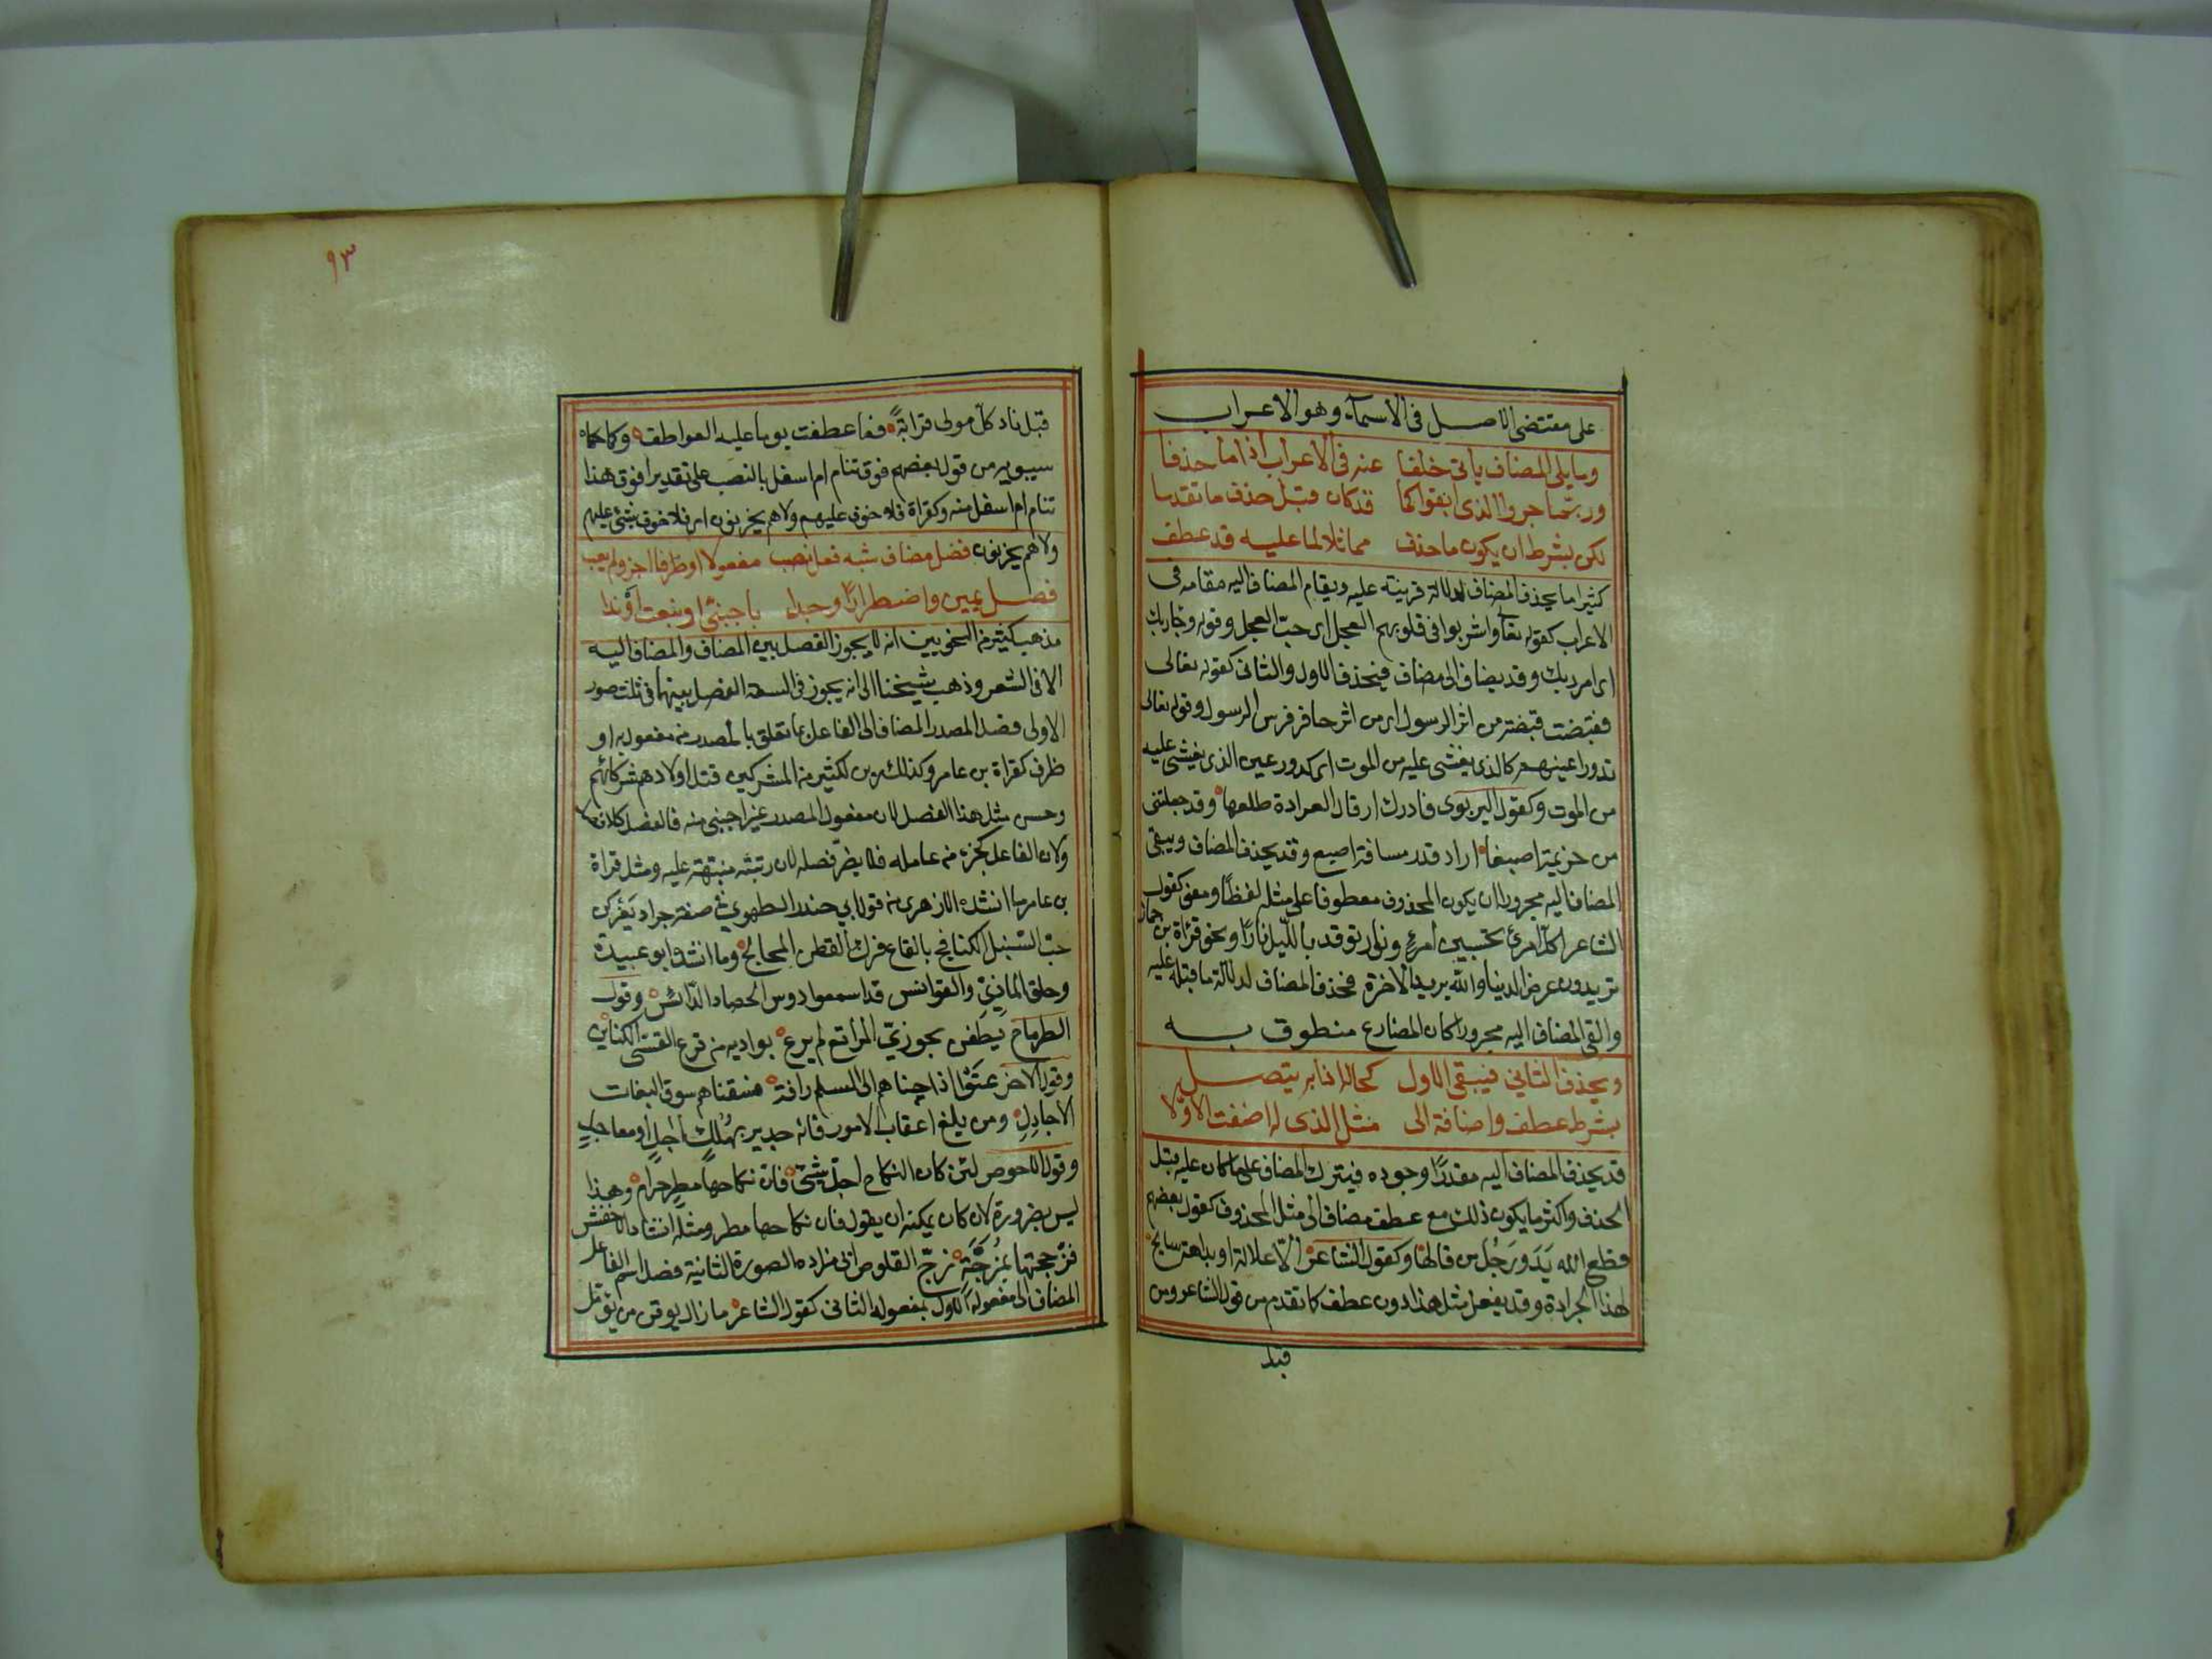 على مقتضى الاصل في الاسمآء وهو الاعراب
وما يلى المضاف ياتى خلفا عنه فى الاعراب اذا ما حذفا
وربّما جروا الذى ابقوا كما قد كان قبل حذف ما تقدما
لكن بشرط ان يكون ما حذف مماثلا لما عليه قد عطف
كثيرا ما يحذف المضاف لدلالة قرينته عليه ويقام المضاف اليه مقامه فى
الاعراب كقوله تعالى واشربوا فى قلوبهم العجل اى حبّ العجل وقوله وجا ربك
اى امر ربك وقد يضاف الى مضاف فيحذف الاول والثانى كقوله تعالى
فقبضت قبضة من اثر الرسول اى من اثر حافر فرس الرسول وقوله تعالى
تدور اعينهم كالذى يغشى عليه من الموت اى كدور عين الذى يغشى عليه
من الموت وكقول اليربوى فادرك ارقال العرادة ظلعها وقد جعلتنى
من حزيمة اصبعا اراد قدر مسافة اصبع وقد يحذف المضاف ويبقى
المضاف اليه مجرورا ان يكون المحذوف معطوفا على مثله لفظًا ومعنى كقول
الشاعر اكلّ امرئ تحسبين امرءٍ ونار توقد بالليل نارًا ونحو قرأة بن جماز
تريدون عرض الدنيا والله يريد الآخرة فحذف المضاف لدلالة ما قبله عليه
والقى المضاف اليه مجرورا كان المضارع منطوق به
ويحذف الثاني فيبقى الاول كحاله اذا به يتصل
بشرط عطف واضافة الى مثل الذى له اضفت الاولا
قد يحذف المضاف اليه مقدرًا وجوده فيترك المضاف على ما كان عليه قبل
الحذف واكثر ما يكون ذلك مع عطف مضاف الى مثل المحذوف كقول بعضهم
قطع الله يَدَ ورَجُل من قالها وكقول الشاعر الّا علالة او بداهة سابح
لهذ الجرادة وقد يفعل مثل هذا دون عطف كما تقدم من قول الشاعر ومن
قبل
٩٣
قبل نادى كلّ مولى قرابةً فما عطفت يوما عليه العواطف وكما حكاه
سيبويه من قول بعضهم فوق تنام ام اسفل بالنصب على تقدير افوق هذا
تنام ام اسفل منه وكقراة فلا خوف عليهم ولا هم يحزنون اى فلا خوف شئ عليهم
ولا هم يحزنون فصل مضاف شبه فعل نصب مفعولا او ظرفا اجز ولم يعب
فصل يمين واضطرارًا وجدا باجنبىّ او بنعت او ندا
مذهب كثير من النحويين انه لا يجوز الفصل بين المضاف والمضاف اليه
الا فى الشعر وذهب شيخنا الى انه يجوز فى السعة الفصل بينهما فى ثلث صور
الاولى فصل المصدر المضاف الى الفاعل بما تعلق بالمصدر من مفعول به او
ظرف كقراة بن عامر وكذلك زين لكثير من المشركين قتل اولادهم شركائهم
وحسن مثل هذا الفصل لان مفعول المصدر غير اجنبى منه فالفصل كلا فصل
ولان الفاعل كجزء من عامله فلا يضرّ فصله لان رتبته منبهة عليه ومثل قراة
بن عامر ما انشده الازهرى من قول ابي جندل الطهوي في صفة جراد يَفْركن
حبّ السّنبل الكنافج بالقاع فرك القطن المحالج وما انشد ابو عبيدة
وحلق الماذيّ والقوانس فداسهموا دوس الحصاد الدّائس وقول
الطرماح يَطفن بحوزيّ المراتع لم يرع بواديه من قرع القسّى الكنائن
وقول الاخر عتَوا اذا جبناهم الى السلم رافة فسقناهم سوق البغاث
الاجادلِ ومن يلغ اعقاب الامور فانه جدير بهُلك آجلٍ او معاجل
وقول الاحوص لئن كان النكاح احلّ شئ فان نكاحها مطرٍ حرام وهذا
ليس بضرورة لان كان يمكنه ان يقول فان نكاحها مطر ومثله انشاد الاخفش
فزَججتها بمزَجَّةٍ زجّ القلوص ابي مزاده الصورة الثانية فصل اسم الفاعل
المضاف الى مفعوله الاول بمفعوله الثانى كقول الشاعر ما زال يوقن من يؤمّل